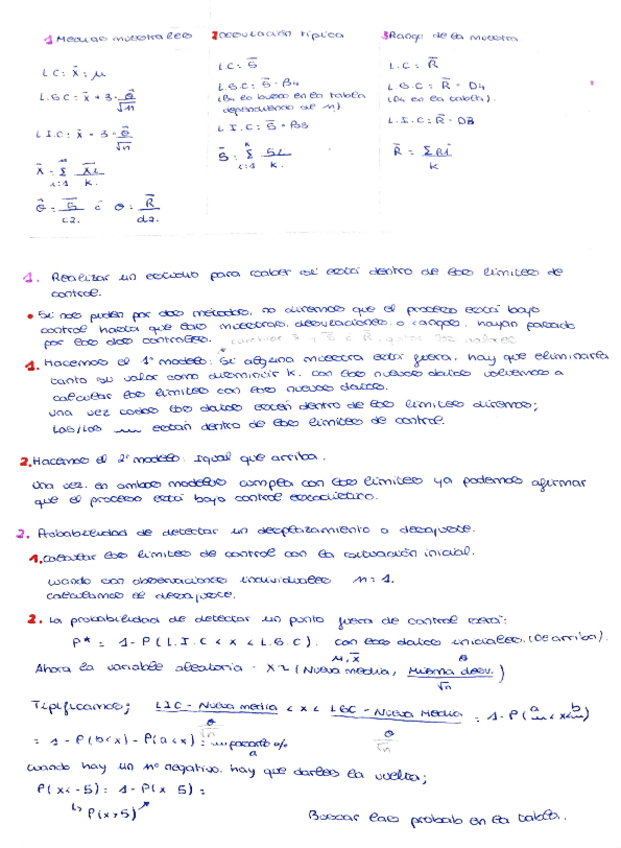 1 Medias muestrales
LC: x̄ = μ
L.S.C: x̄ + 3 · σ̂/√n
L.I.C: x̄ - 3 · σ̂/√n
x̄ = Σ x̄i / k
i=1
σ̂ = S̄/c2 ó σ = R̄/d2
2 Desviación típica
LC: S̄
L.S.C: S̄ · B4
(B4 se busca en la tabla
dependiendo de n)
L.I.C: S̄ · B3
S̄ = Σ Si / k
3 Rango de la muestra
L.C: R̄
L.S.C: R̄ · D4
(D4 en la tabla).
L.I.C: R̄ · D3
R̄ = ΣRi / k
1. Realizar un estudio para saber si está dentro de los límites de
control.
• Si nos piden por dos métodos, no diremos que el proceso está bajo
control hasta que las muestras, desviaciones o rangos, hayan pasado
por los dos controles.
1. Hacemos el 1º modelo: Si alguna muestra está fuera, hay que eliminar
tanto su valor como disminuir k. con los nuevos datos volvemos a
calcular los límites con los nuevos datos.
una vez todos los datos estén dentro de los límites diremos;
las/los están dentro de los límites de control.
2. Hacemos el 2º modelo: Igual que arriba.
Una vez en ambos modelos cumpla con los límites ya podemos afirmar
que el proceso está bajo control estadístico.
2. Probabilidad de detectar un desplazamiento o desajuste.
1. Calcular los límites de control con la situación inicial.
cuando son observaciones individuales n = 1.
calculamos el desajuste.
2. La probabilidad de detectar un punto fuera de control está:
P* = 1 - P(L.I.C < x < L.S.C). con los datos iniciales. (De arriba).
Ahora la variable aleatoria · X ~ (Nueva media, Misma desv. / √n)
Tipificamos; LIC - Nueva media / σ/√n < x < LSC - Nueva Media / σ/√n = 1 - P(a < x < b)
= 1 - P(b < x) - P(a < x) =
Cuando hay un nº negativo, hay que darles la vuelta;
P(x < -5) = 1 - P(x 5) =
↳ P(x > 5)
Buscar las probab en la tabla.